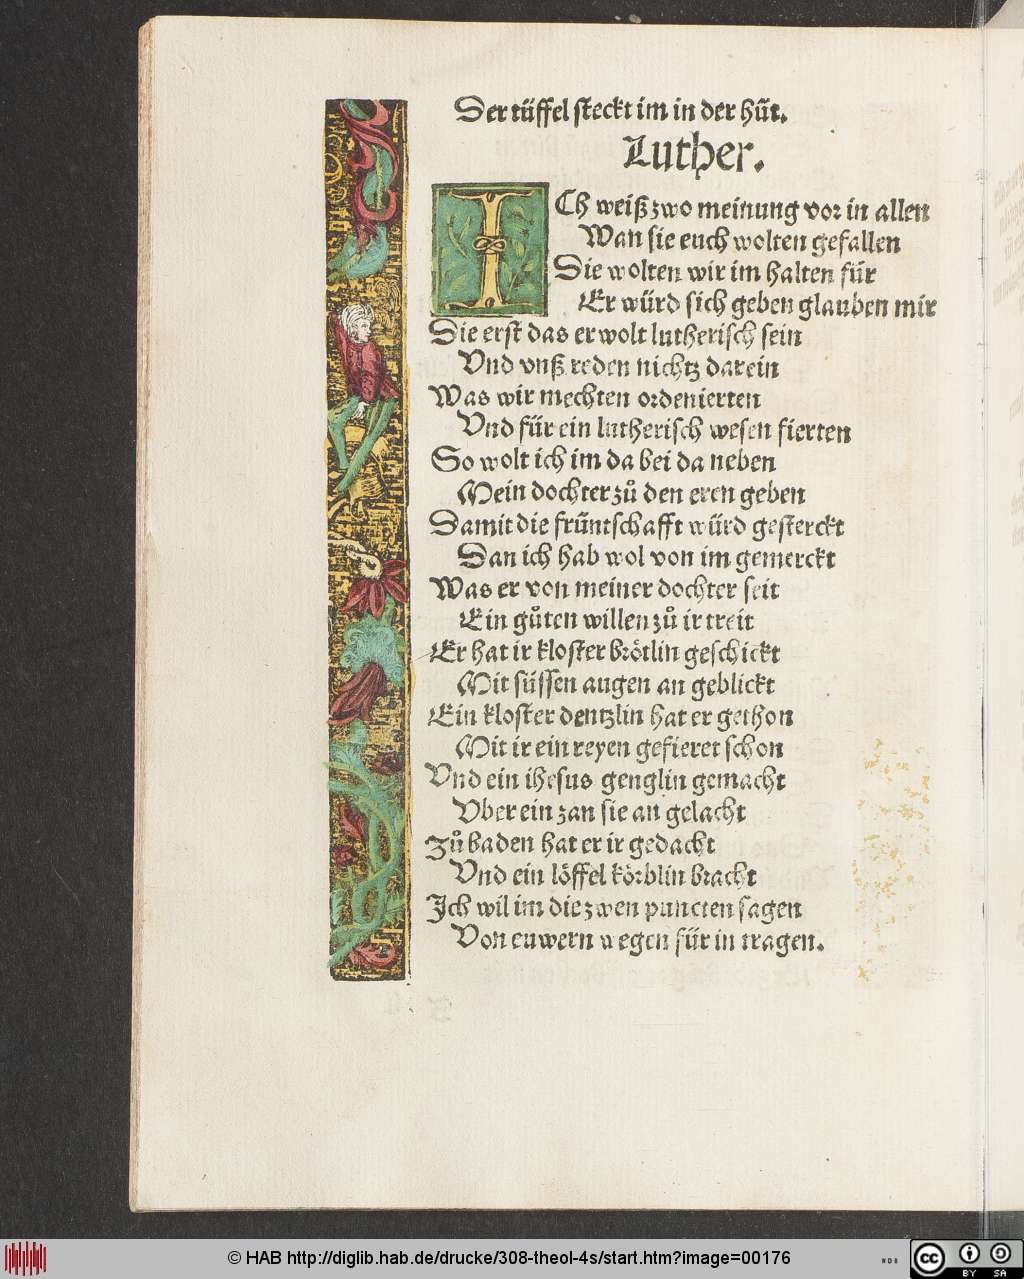 Der tüffel steckt im in der hüt.
Luther.
ICh weiß zwo meinung vor in allen
Wan sie euch wolten gefallen
Die wolten wir im halten für
Er würd sich geben glauben mir
Die erst das er wolt lutherisch sein
Vnd vnß reden nichtz darein
Was wir mechten ordenierten
Vnd für ein lutherisch wesen fierten
So wolt ich im da bei da neben
Mein dochter zů den eren geben
Damit die früntschafft würd gesterckt
Dan ich hab wol von im gemerckt
Was er von meiner dochter seit
Ein gůten willen zů ir treit
Er hat ir kloster brötlin geschickt
Mit süssen augen an geblickt
Ein kloster dentzlin hat er gethon
Mit ir ein reyen gefieret schon
Vnd ein ihesus genglin gemacht
Vber ein zan sie an gelacht
Zů baden hat er ir gedacht
Vnd ein löffel körblin bracht
Jch wil im die zwen puncten sagen
Von euwern wegen für in tragen.
© HAB http://diglib.hab.de/drucke/308-theol-4s/start.htm?image=00176
WDB
cc BY SA